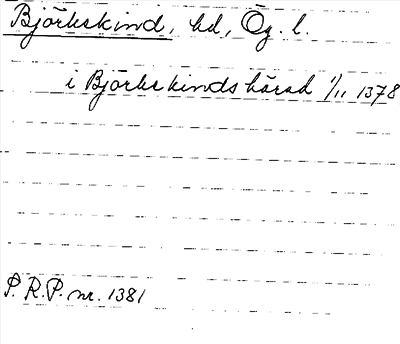 Björkekind, hd, Ög. l.
i Björkekinds härad 1/11 1378
P. R. P. nr. 1381